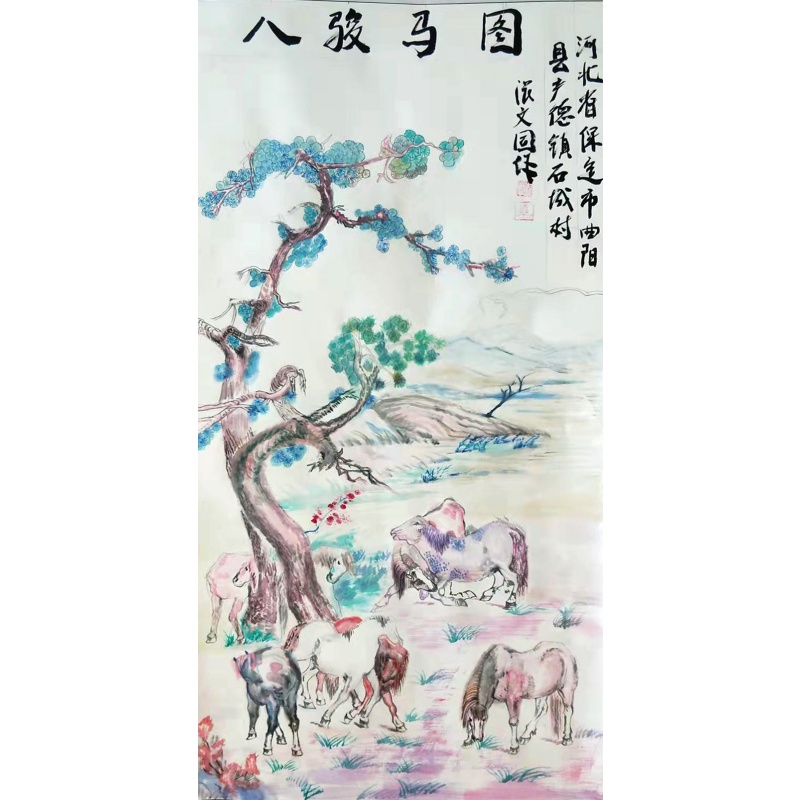 八骏马图
河北省保定市曲阳
县产德镇石城村
文同作